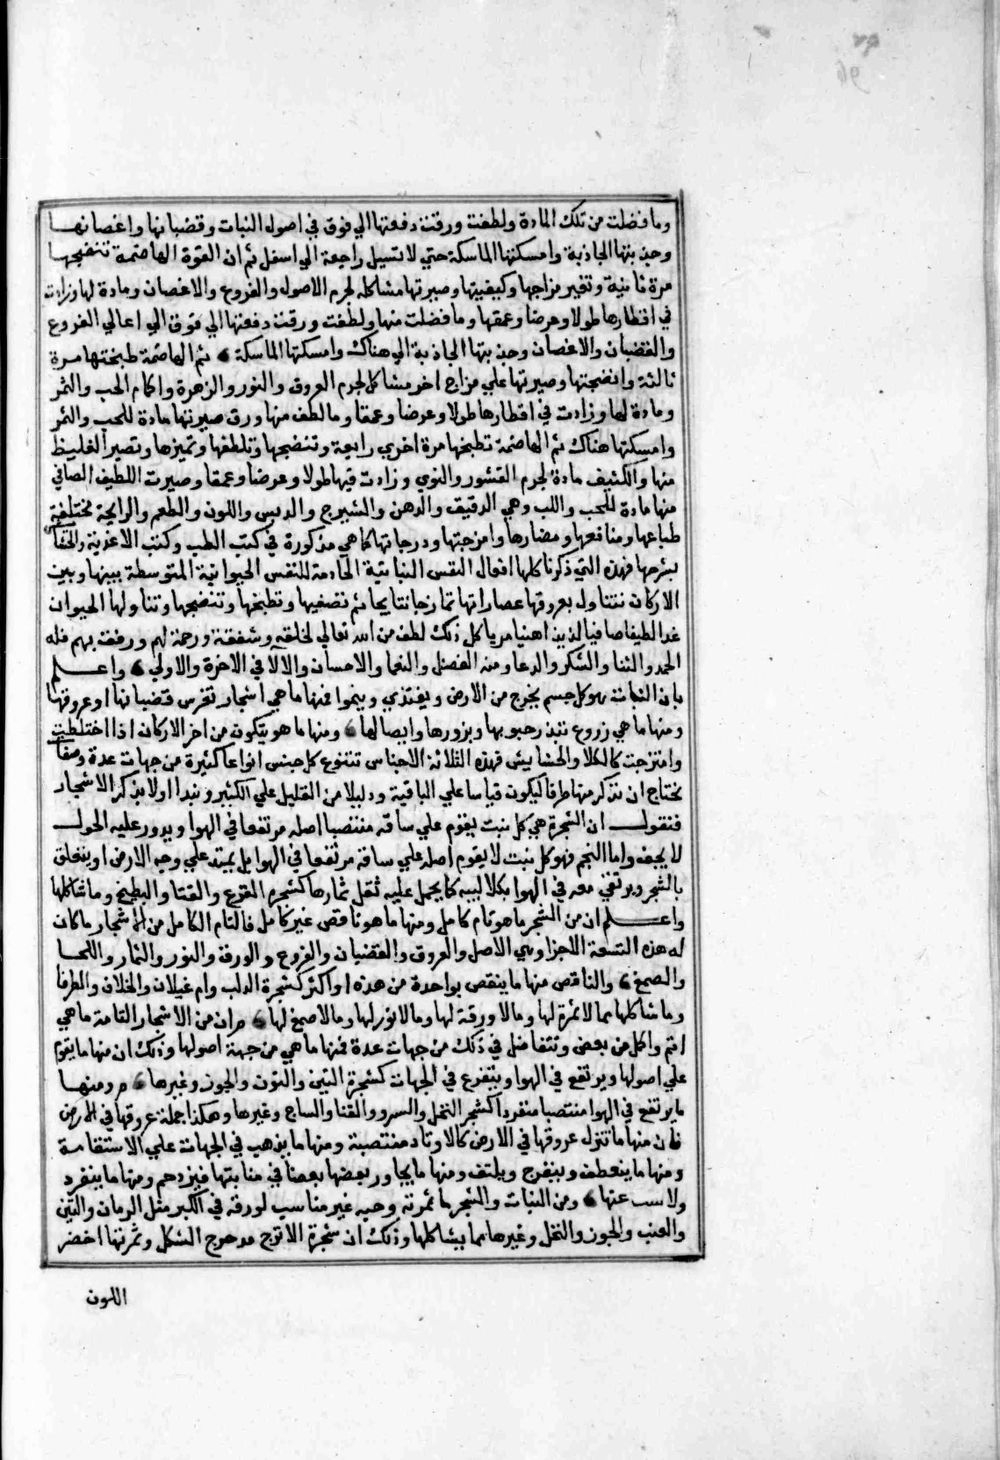 وما فضلت من تلك المادة ولطفت ورقت دفعتها الي فوق في اصول النبات وقضبانها واغصانها
وجذبتها الجاذبة وامسكتها الماسكة حتي لا تسيل راجعة الي اسفل ثم ان القوة الهاضمة تنضجها
مرة ثانية وتغير مزاجها وكيفيتها وصيرتها مشاكله لجرم الاصول والفروع والاغصان ومادة لها وزادت
في اقطارها طولا وعرضا وعمقها وما فضلت منها ولطفت ورقت دفعتها الي فوق الي اعالي الفروع
والقضبان والاغصان وجذبتها الجاذبة الي هناك وامسكتها الماسكة ثم الهاضمة طبختها مرة
ثالثة وانضجتها وصيرتها علي مزاج اخر مشاكل لجرم العروق والنور والزهرة واكمام الحب والثمر
ومادة لها وزادت في اقطارها طولا وعرضا وعمقا وما لطف منها ورق صيرتها مادة للحب والثمر
وامسكتها هناك ثم الهاضمة تطبخها مرة اخري رابعة وتنضجها وتلطفها وتميزها وتصير الغليظ
منها والكثيف مادة لجرم القشور والنوي وزادت فيها طولا وعرضا وعمقا وصيرت اللطيف الصافي
منها مادة للحب واللب وهي الدقيق والدهن والشيرج والدبس واللون والطعم والرايحة مختلفة
طباعها ومنافعها ومضارها وامزجتها ودرجاتها كما هي مذكورة في كتب الطب وكتب الاغذية والحشايش
بشرحها فهذه التي ذكرنا كلها افعال النفس النباتية الخادمة للنفس الحيوانية المتوسطة بينها وبين
الاركان تتناول بعروقها عصاراتها تمازجا نتايجا ثم تصفيها وتطبخها وتنضجها وتناولها الحيوان
غدا لطيفا صافيا لذيذا هنيا مريا كل ذلك لطف من الله تعالي لخلقه وشفقة ورحمة لهم ورفقت بهم فله
الحمد والثنا والشكر والدعا ومنه الفضل والنعما والامسان والالا في الاخرة والاولي واعلم
بان النبات هو كل جسم يخرج من الارض ويغتذي وينموا فمنها ما هي اشجار تغرس قضبانها او عروقها
ومنها ما هي زروع تبذر حبوبها وبزورها وايصالها ومنها ما هو يتكون من اخر الاركان اذا اختلطت
وامتزجت كالكلا والحشايش فهذه الثلاثة الاجناس تتنوع كل جنس انواعا كثيرة من جهات عدة وصفات
نحتاج ان نذكر منها طرفا ليكون قياسا علي الباقية ودليلا من القليل علي الكثير ونبدا اولا بذكر الاشجار
فنقول ان الشجرة هي كل نبت يقوم علي ساقه منتصبا اصله مرتفعا في الهوا ويدور عليه الحول
لا يجف واما النجم فهو كل نبت لا يقوم اصله علي ساقه مرتفعا في الهوا بل يمتد علي وجه الارض او يتعلق
بالشجر ويرتقي معه في الهوا بكلاليبه كما يحمل عليه ثقل ثمارها كشجرة القرع والقثا والبطيخ وما شاكلها
واعلم ان من الشجر ما هو تام كامل ومنها ما هو ناقص غير كامل فالتام الكامل من الاشجار ما كان
له هذه التسعة الاجزا وهي الاصل والعروق والقضبان والفروع والورقة والنور والثمار واللحا
والصمغ والناقص منها ما ينقص بواحدة من هذه او اكثر كشجرة الدلب وام غيلان والخلاف والطرفا
وما شاكلها مما لا ثمرة لها ومالا ورقة لها ومالا نور لها ومالا صمغ لها م ان من الاشجار التامة ما هي
اتم واكل من بعض وتتفاضل في ذلك من جهات عدة فمنها ما هي من جهة اصولها وذلك ان منها ما يقوم
علي اصولها ويرتفع في الهوا ويتفرع في الجهات كشجرة التين والتوت والجوز وغيرها م ومنها
ما يرتفع في الهوا منتصبا منفردا كشجر النخل والسرو والقنا والساج وغيرها وهكذا جملة عروقها في الارض
فان منها ما تنزل عروقها في الارض كالاوتاد منتصبة ومنها ما يذهب في الجهات علي الاستقامة
ومنها ما ينعطف وينفرج ويلتف ومنها ما يجاور بعضها بعضا في منابتها فيزدحم ومنها ما ينفرد
ولاسب عنها ومن النبات والشجر ما ثمرته وحبه غير مناسب لورقه في الكبر مثل الرمان والتين
والعنب والجوز والنخل وغيرها مما يشاكلها وذلك ان شجرة الاترج مدحرج الشكل وثمرتها اخضر
اللون